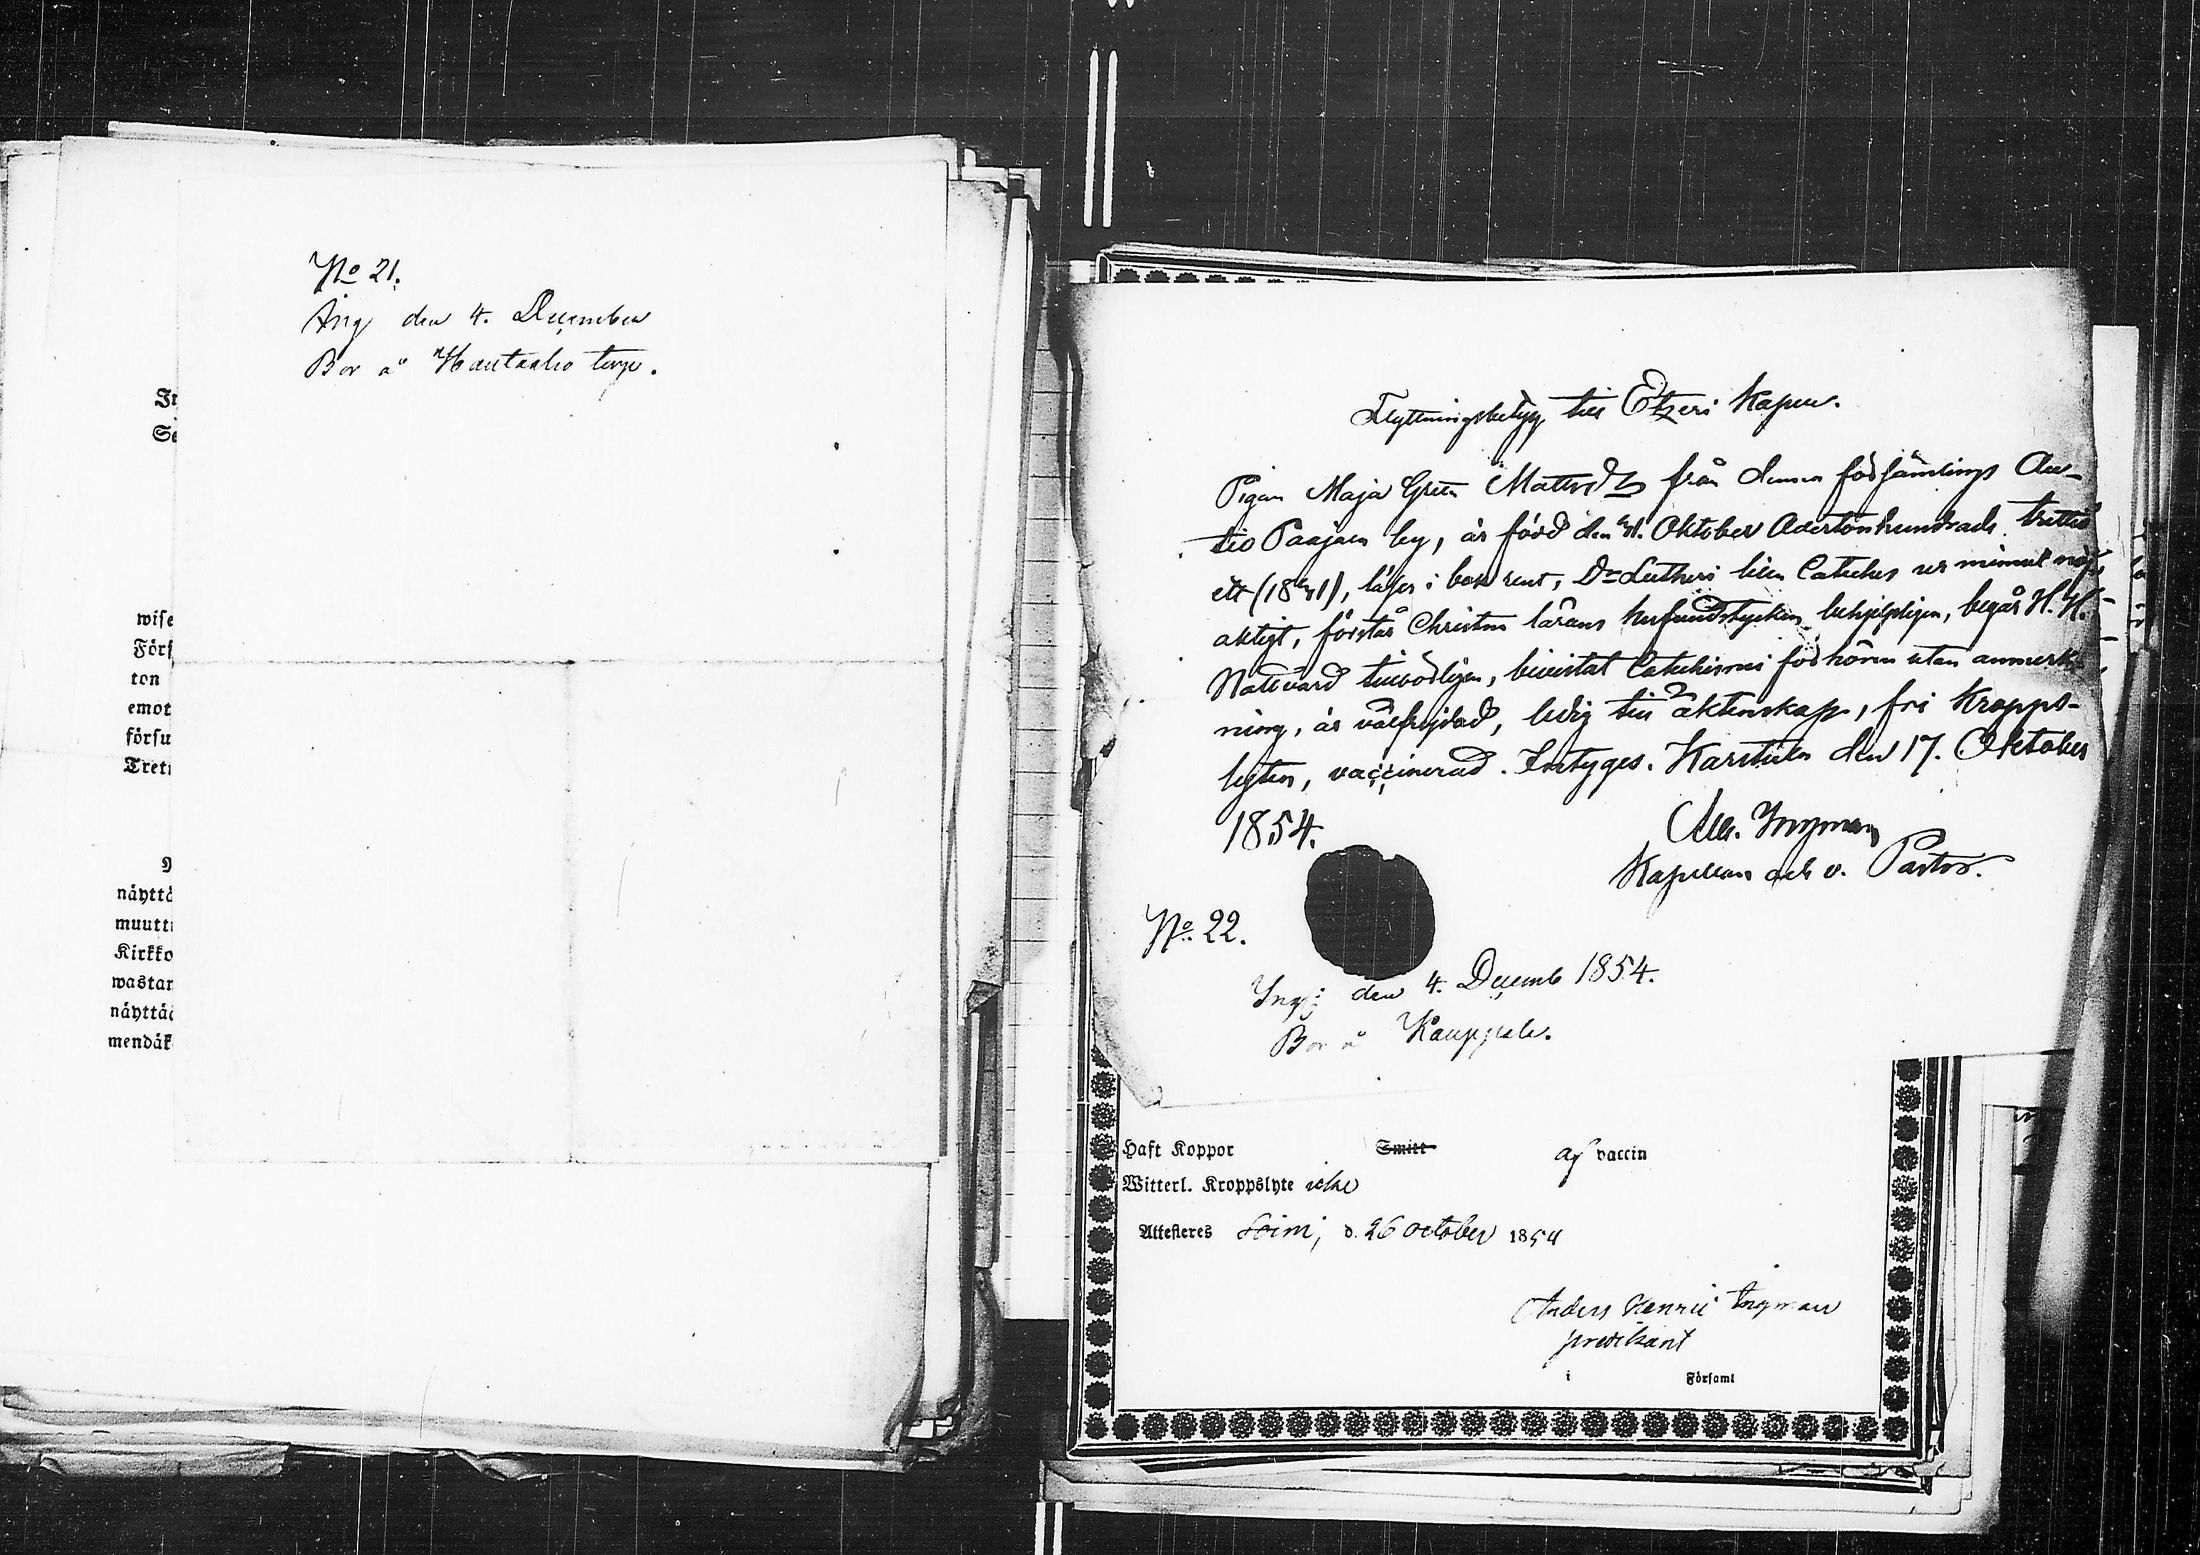 No 21.
Ing den 4. December
Bor å Hautaaho torp.
wise
Förs
ton
emot
försu
näyttä
muutt
Kirkko
wastan
näyttä
mendäk
Flyttningsbetyg till Etzeri Kapell.
Pigan Maja Greta Mattsdr från denna församlings
tio Paajaen by, är född den 31. Oktober Adertonhundrade trettio
ett (1831), läser i bok rent, Dr Lutheri lilla Cateches ur minnet nöj-
aktigt, förstår Christna lärans hufvudstycken behjelpligen, begår H. H.
Nattvard tillbörligen, bevistat Catechismi förhören utan anmerk-
ning, är välfrejdad, ledig till äktenskap, fri Kropps-
lyten, vaccinerad. Intygas. Karstula den 17. Oktober
1854.
Alex. Ingman
Kapellan och v. Pastor.
No 22.
Ing: den 4. Decemb 1854.
Bor å Kauppala.
Haft Koppor Smitt af vaccin
Witterl. Kroppslyte icke
Attesteres Soini, d. 26 october 1854
Anders Henric Ingman
predikant
i Församl